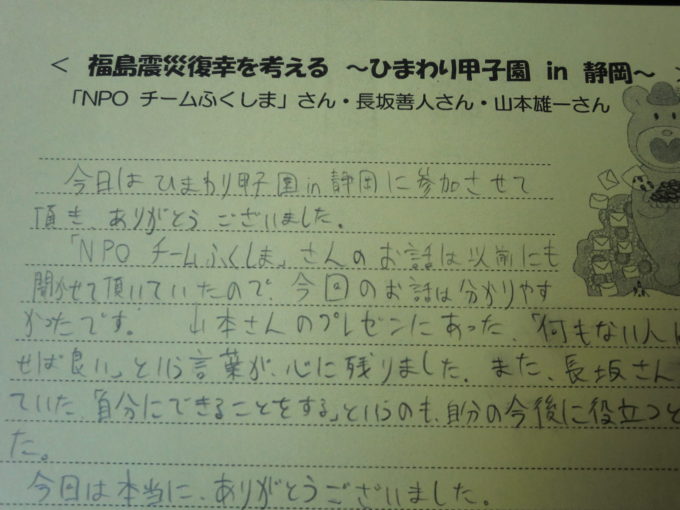 ＜ 福島震災復幸を考える ～ひまわり甲子園 in 静岡～ ＞
「NPO チームふくしま」さん・長坂善人さん・山本雄一さん
今日は ひまわり甲子園in静岡に参加させて
頂き、ありがとう ございました。
「NPO チームふくしま」さんのお話は以前にも
聞かせて頂いていたので、今回のお話は分かりやす
かったです。 山本さんのプレゼンにあった、「何もない人
せば良い」という言葉が、心に残りました。また、長坂さん
ていた「自分にできることをする」というのも、自分の今後に役立つと
た。
今日は本当に、ありがとうございました。